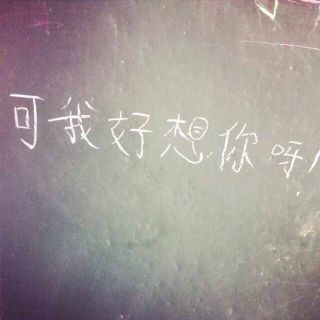 可我好想你呀